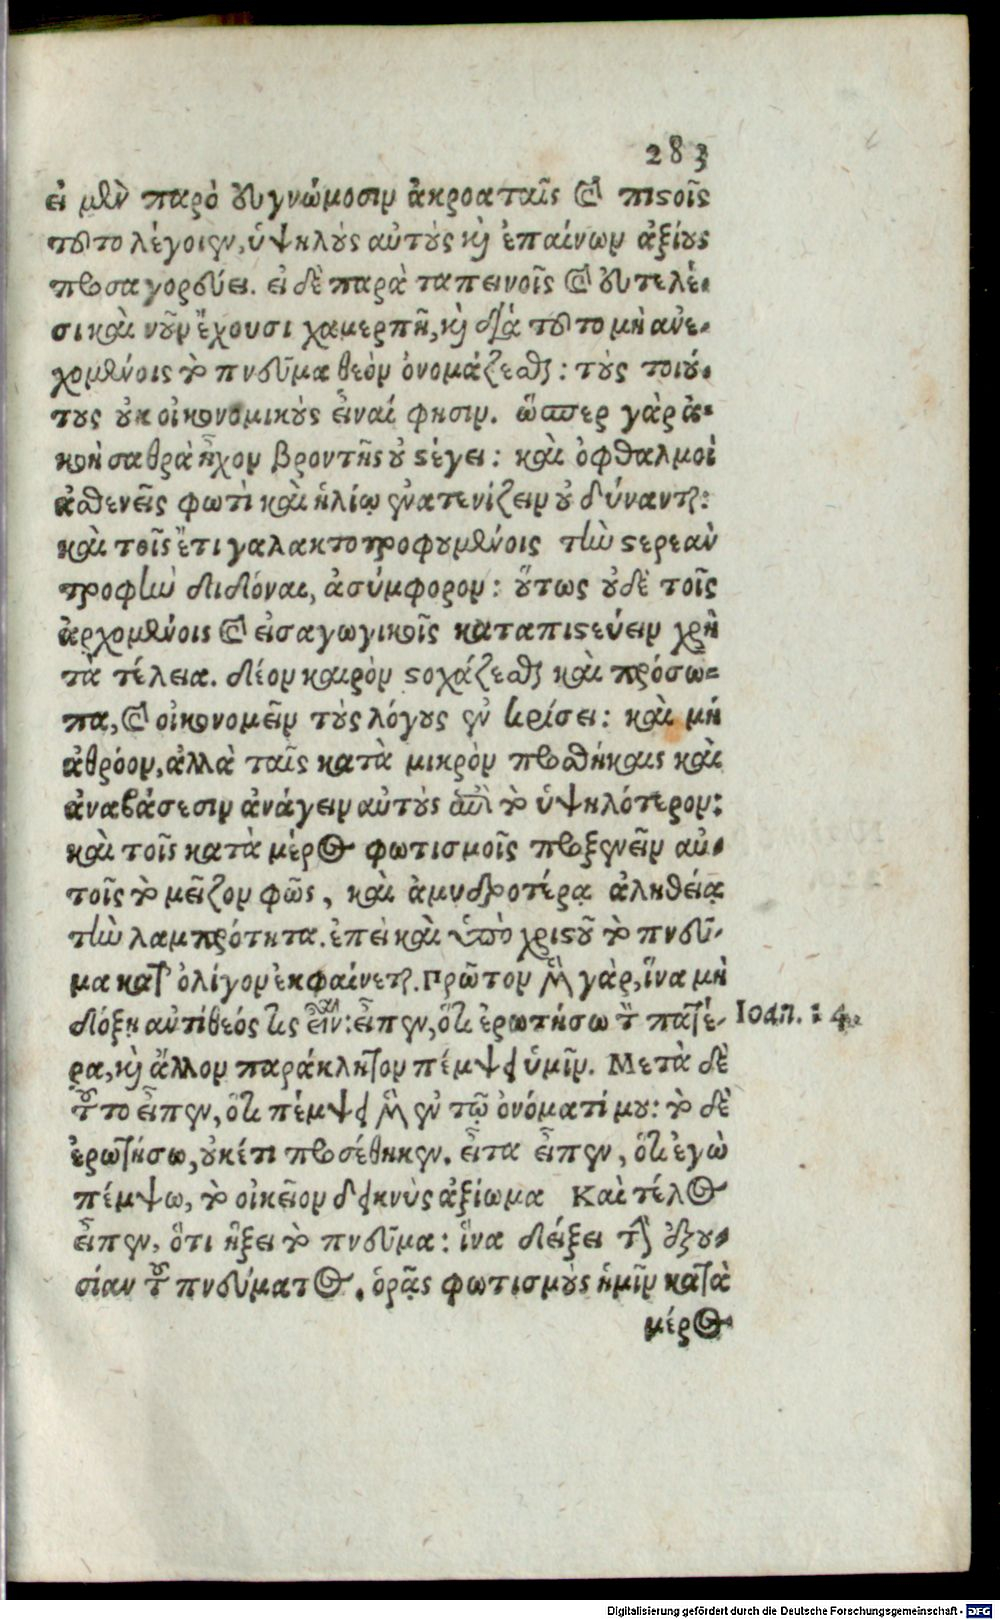 283
εἰ μὲν παρὸ εὐγνώμοσιν ἀκροαταῖς καὶ πιστοῖς
τοῦτο λέγοιεν, ὑψηλοὺς αὐτοὺς καὶ ἐπαίνων ἀξίους
προσαγορεύει. εἰ δὲ παρὰ ταπεινοῖς καὶ εὐτελέ-
σι καὶ νοῦν ἔχουσι χαμερπῆ, καὶ διὰ τοῦτο μὴ ἀνε-
χομένοις τὸ πνεῦμα θεὸν ὀνομάζεσθαι: τοὺς τοιού-
τους οὐκ οἰκονομικοὺς εἶναί φησιν. ὥσπερ γὰρ ἀ-
κοὴ σαθρὰ ἦχον βροντῆς οὐ στέγει: καὶ ὀφθαλμοὶ
ἀσθενεῖς φωτὶ καὶ ἡλίῳ ἐνατενίζειν οὐ δύνανται:
καὶ τοῖς ἔτι γαλακτοτροφουμένοις τὴν στερεὰν
τροφὴν διδόναι, ἀσύμφορον: οὕτως οὐδὲ τοῖς
ἀρχομένοις καὶ εἰσαγωγικοῖς καταπιστεύειν χρὴ
τὰ τέλεια. δέον καιρὸν στοχάζεσθαι καὶ πρόσω-
πα, καὶ οἰκονομεῖν τοὺς λόγους ἐν κρίσει: καὶ μὴ
ἀθρόον, ἀλλὰ ταῖς κατὰ μικρὸν προσθήκαις καὶ
ἀναβάσεσιν ἀνάγειν αὐτοὺς ἐπὶ τὸ ὑψηλότερον:
καὶ τοῖς κατὰ μέρος φωτισμοῖς προξενεῖν αὐ-
τοῖς τὸ μεῖζον φῶς, καὶ ἀμυδροτέρᾳ ἀληθείᾳ
τὴν λαμπρότητα. ἐπεὶ καὶ ὑπὸ χριστοῦ τὸ πνεῦ-
μα κατ' ὀλίγον ἐκφαίνεται. Πρῶτον μὲν γὰρ, ἵνα μὴ
δόξῃ ἀντίθεός τις εἶναι: εἶπεν, ὅτι ἐρωτήσω τὸν πατέ-
Ioan. 14.
ρα, καὶ ἄλλον παράκλητον πέμψει ὑμῖν. Μετὰ δὲ
τοῦτο εἶπεν, ὅτι πέμψει μὲν ἐν τῷ ὀνόματί μου: τὸ δὲ
ἐρωτήσω, οὐκέτι προσέθηκεν. εἶτα εἶπεν, ὅτι ἐγὼ
πέμψω, τὸ οἰκεῖον δεικνὺς ἀξίωμα Καὶ τέλος
εἶπεν, ὅτι ἥξει τὸ πνεῦμα: ἵνα δείξει τὴν ἐξου-
σίαν τοῦ πνεύματος. ὁρᾷς φωτισμοὺς ἡμῖν κατὰ
μέρος
Digitalisierung gefördert durch die Deutsche Forschungsgemeinschaft - DFG